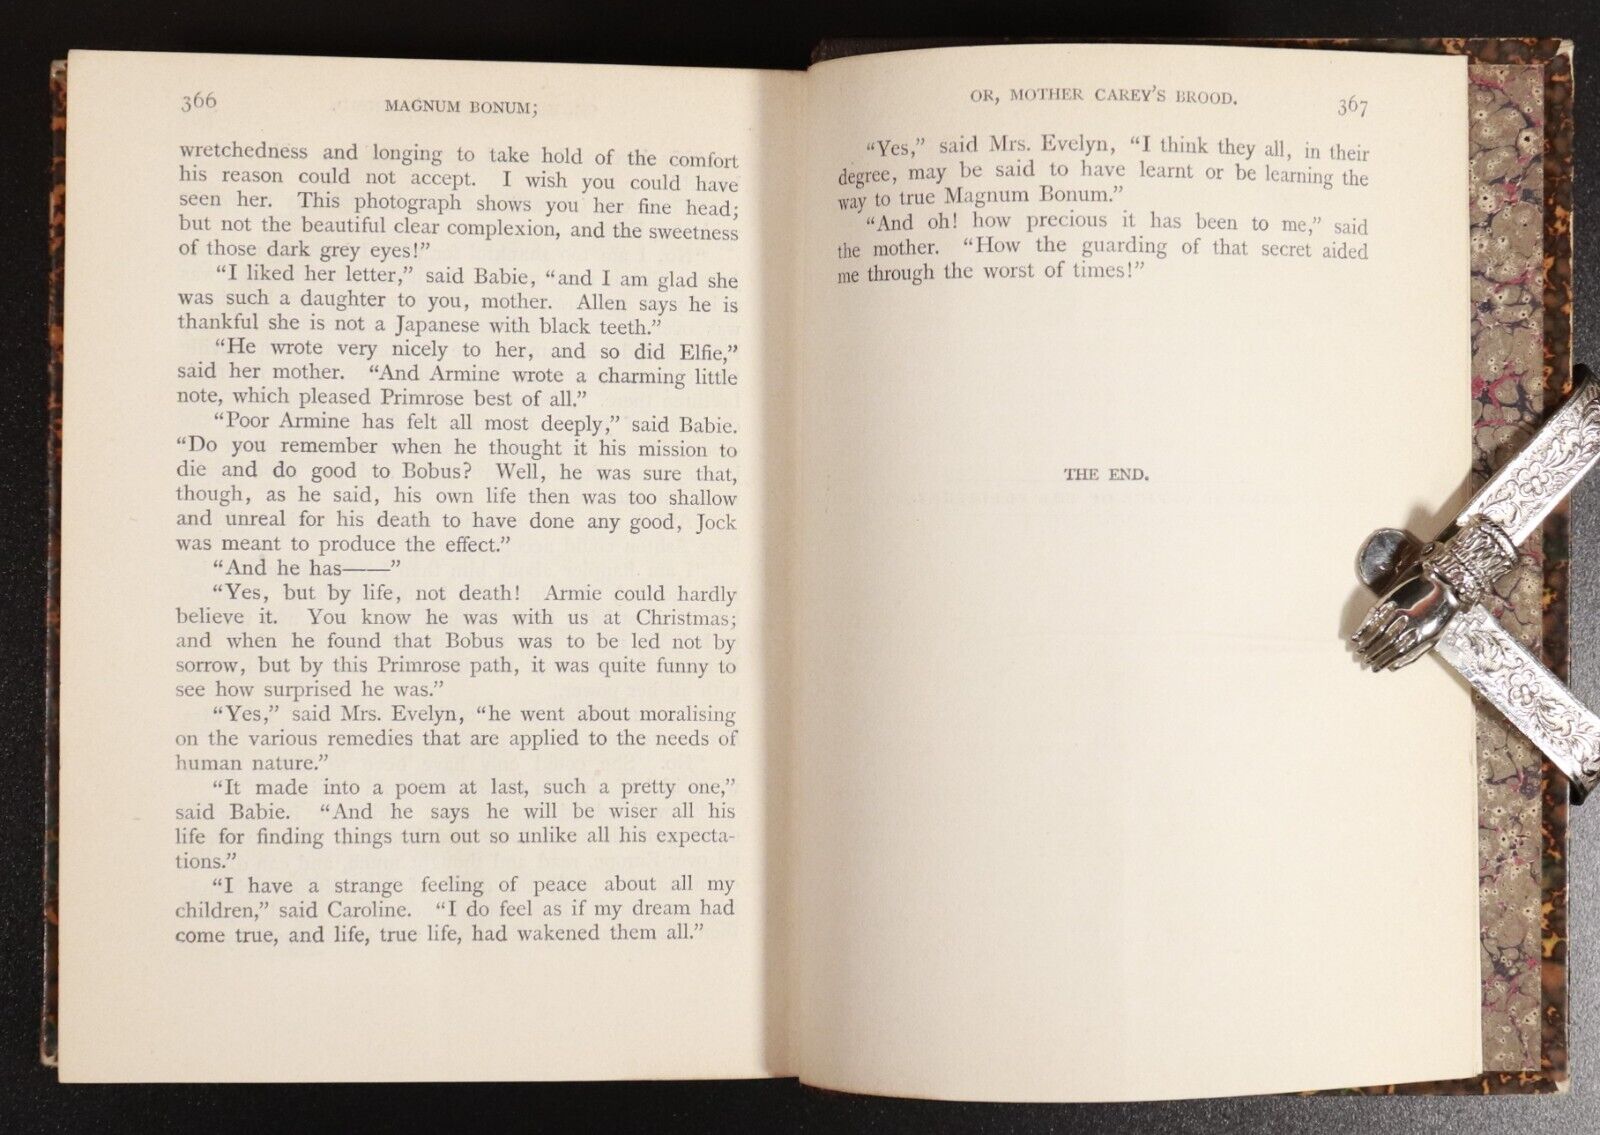 366
MAGNUM BONUM;
wretchedness and longing to take hold of the comfort
his reason could not accept. I wish you could have
seen her. This photograph shows you her fine head;
but not the beautiful clear complexion, and the sweetness
of those dark grey eyes!”
“I liked her letter,” said Babie, “and I am glad she
was such a daughter to you, mother. Allen says he is
thankful she is not a Japanese with black teeth.”
“He wrote very nicely to her, and so did Elfie,”
said her mother. “And Armine wrote a charming little
note, which pleased Primrose best of all.”
“Poor Armine has felt all most deeply,” said Babie.
“Do you remember when he thought it his mission to
die and do good to Bobus? Well, he was sure that,
though, as he said, his own life then was too shallow
and unreal for his death to have done any good, Jock
was meant to produce the effect.”
“And he has——”
“Yes, but by life, not death! Armie could hardly
believe it. You know he was with us at Christmas;
and when he found that Bobus was to be led not by
sorrow, but by this Primrose path, it was quite funny to
see how surprised he was.”
“Yes,” said Mrs. Evelyn, “he went about moralising
on the various remedies that are applied to the needs of
human nature.”
“It made into a poem at last, such a pretty one,”
said Babie. “And he says he will be wiser all his
life for finding things turn out so unlike all his expecta-
tions.”
“I have a strange feeling of peace about all my
children,” said Caroline. “I do feel as if my dream had
come true, and life, true life, had wakened them all.”
OR, MOTHER CAREY’S BROOD.
367
“Yes,” said Mrs. Evelyn, “I think they all, in their
degree, may be said to have learnt or be learning the
way to true Magnum Bonum.”
“And oh! how precious it has been to me,” said
the mother. “How the guarding of that secret aided
me through the worst of times!”
THE END.